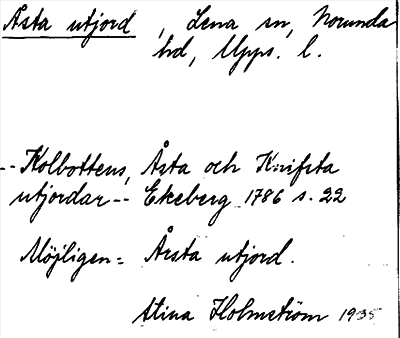 Åsta utjord, Lena sn, Norunda
hd, Upps. l.
-- Kolbottens, Åsta och Knifsta
utjordar -- Ekeberg 1786 s. 22
Möjligen = Årsta utjord.
Stina Holmström 1935